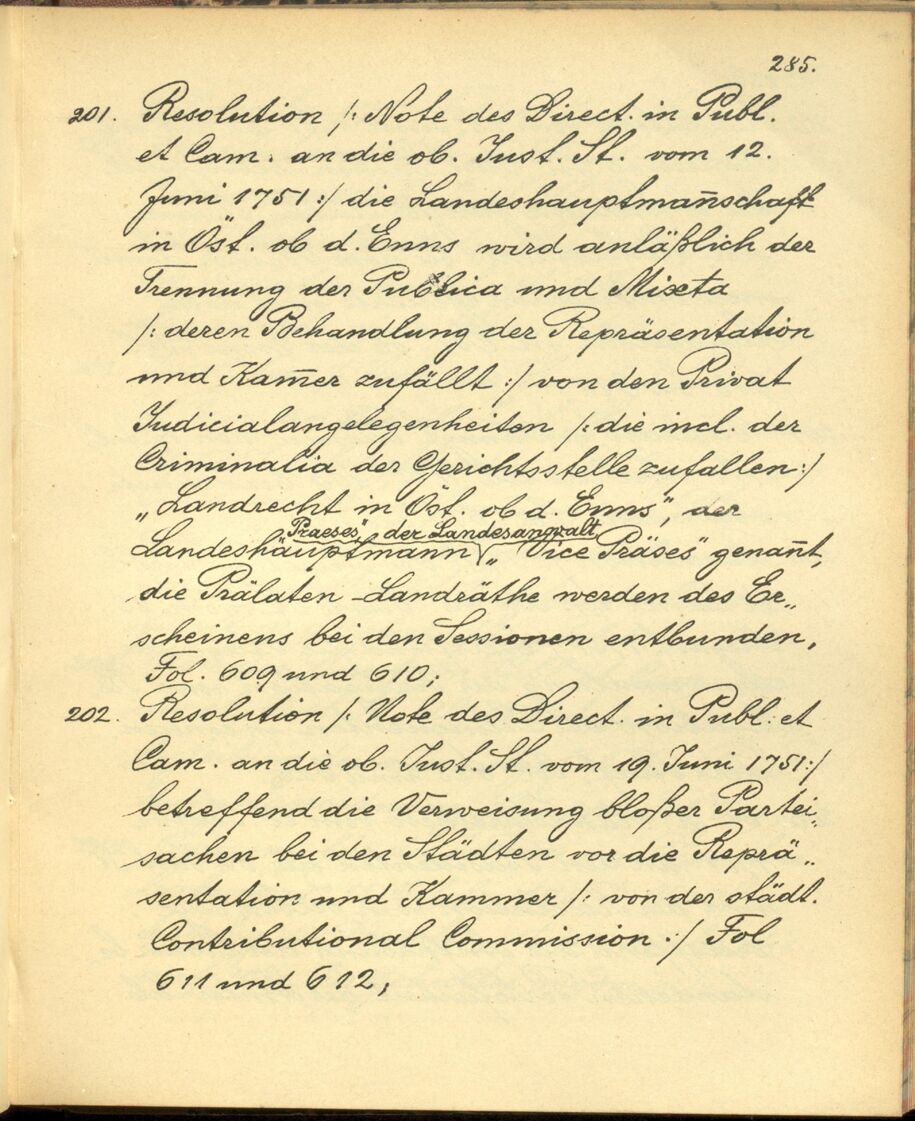 285.
201. Resolution /: Note des Direct. in Publ.
et Cam. an die ob. Just. St. vom 12.
Juni 1751 :/ die Landeshauptman̄schaft
in Öst. ob d. Enns wird anläßlich der
Trennung der Publica und Mixta
/: deren Behandlung der Repräsentation
und Kam̄er zufällt :/ von den Privat
Judicialangelegenheiten /: die incl. der
Criminalia der Gerichtsstelle zufallen :/
„Landrecht in Öst. ob d. Enns", der
Praeses", der Landesanwalt
Landeshauptmann „Vice Präses" genan̄t,
die Prälaten-Landräthe werden des Er„
scheinens bei den Sessionen entbunden,
Fol. 609 und 610;
202. Resolution /: Note des Direct. in Publ. et
Cam. an die ob. Just. St. vom 19. Juni 1751 :/
betreffend die Verweisung bloßer Partei„
sachen bei den Städten vor die Reprä„
sentation und Kammer /: von der städt.
Contributional Commission :/ Fol
611 und 612;